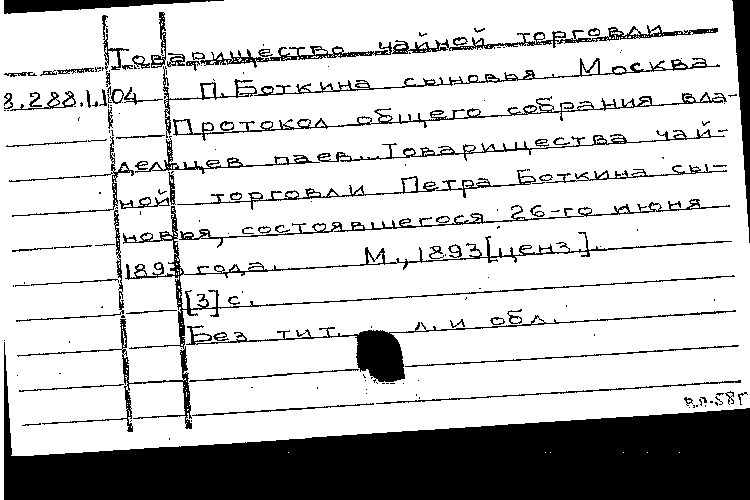 Товарищество чайной торговли
8.288.1.104 П. Боткина сыновья. Москва.
Протокол общего собрания вла-
дельцев паев... Товарищества чай-
ной торговли Петра Боткина сы-
новья, состоявшегося 26-го июня
1893 года. М., 1893 [ценз.].
[3] с.
Без тит. л. и обл.